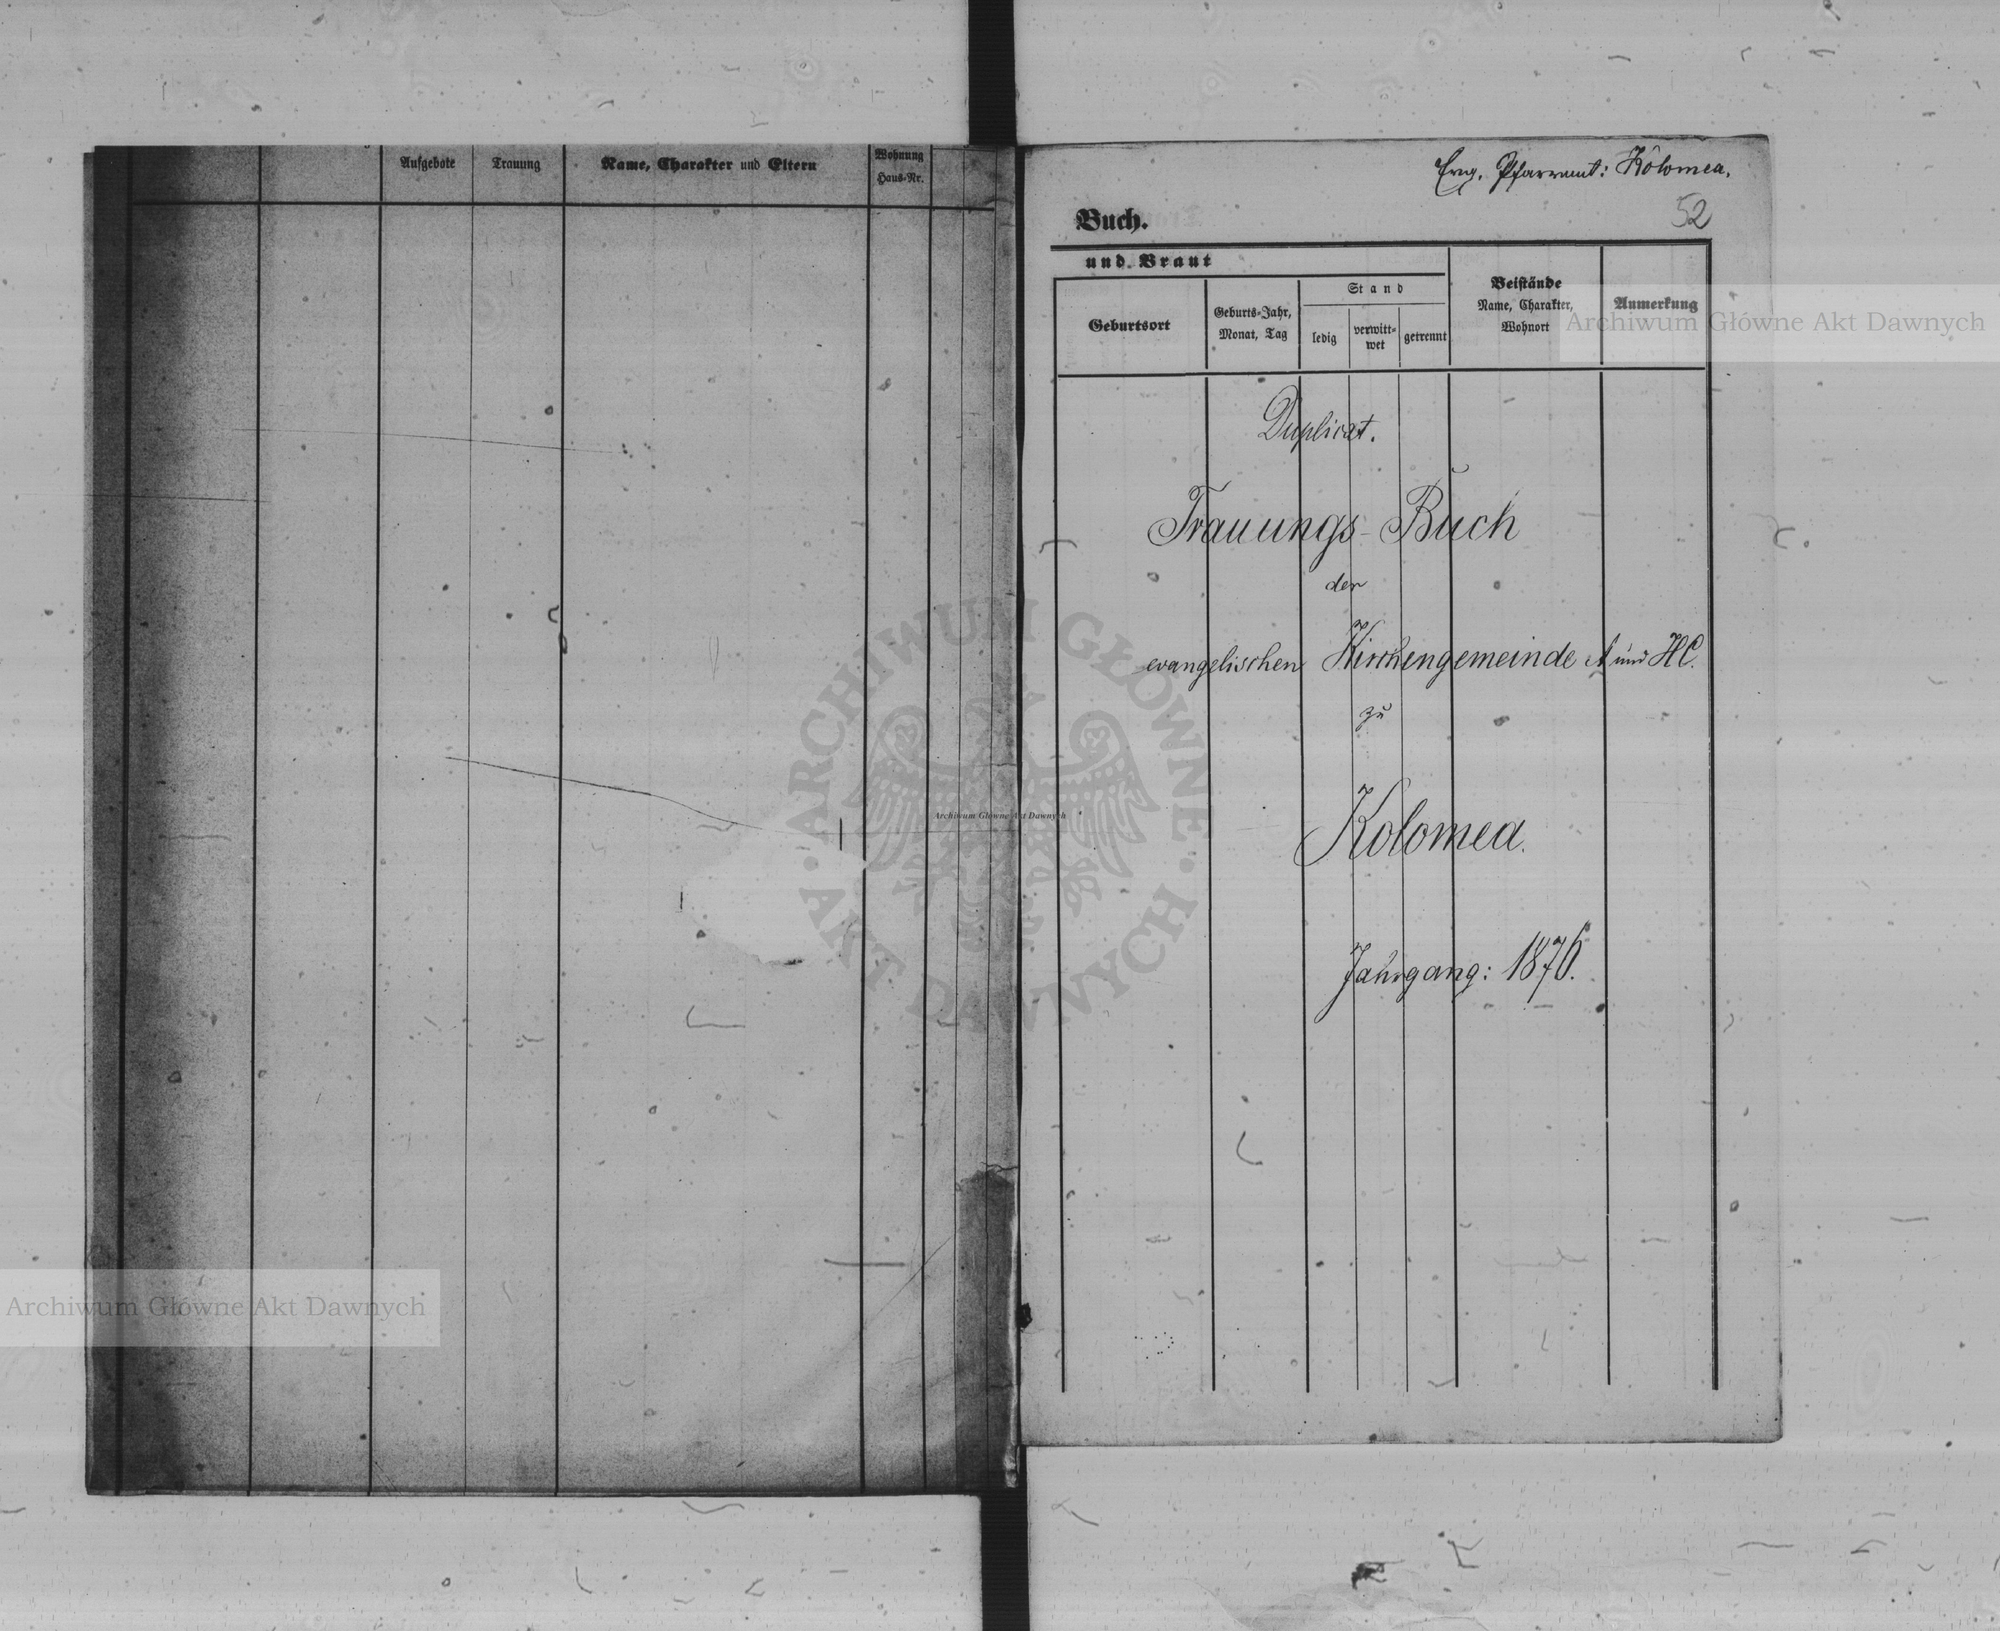 Aufgebote Trauung Name, Charakter und Eltern Wohnung Haus-Nr.
Evng. Pfarramt: Kolomea.
52
Buch.
und Braut
Geburtsort
Geburts-Jahr,
Monat, Tag
Stand
ledig
verwitt-
wet
getrennt
Beistände
Name, Charakter,
Wohnort
Anmerkung
Archiwum Główne Akt Dawnych
Duplicat.
Trauungs-Buch
der
evangelischen Kirchengemeinde A und HC.
zu
ARCHIWUM GŁÓWNE AKT DAWNYCH
Archiwum Główne Akt Dawnych
Kolomea.
Jahrgang: 1876.
Archiwum Główne Akt Dawnych